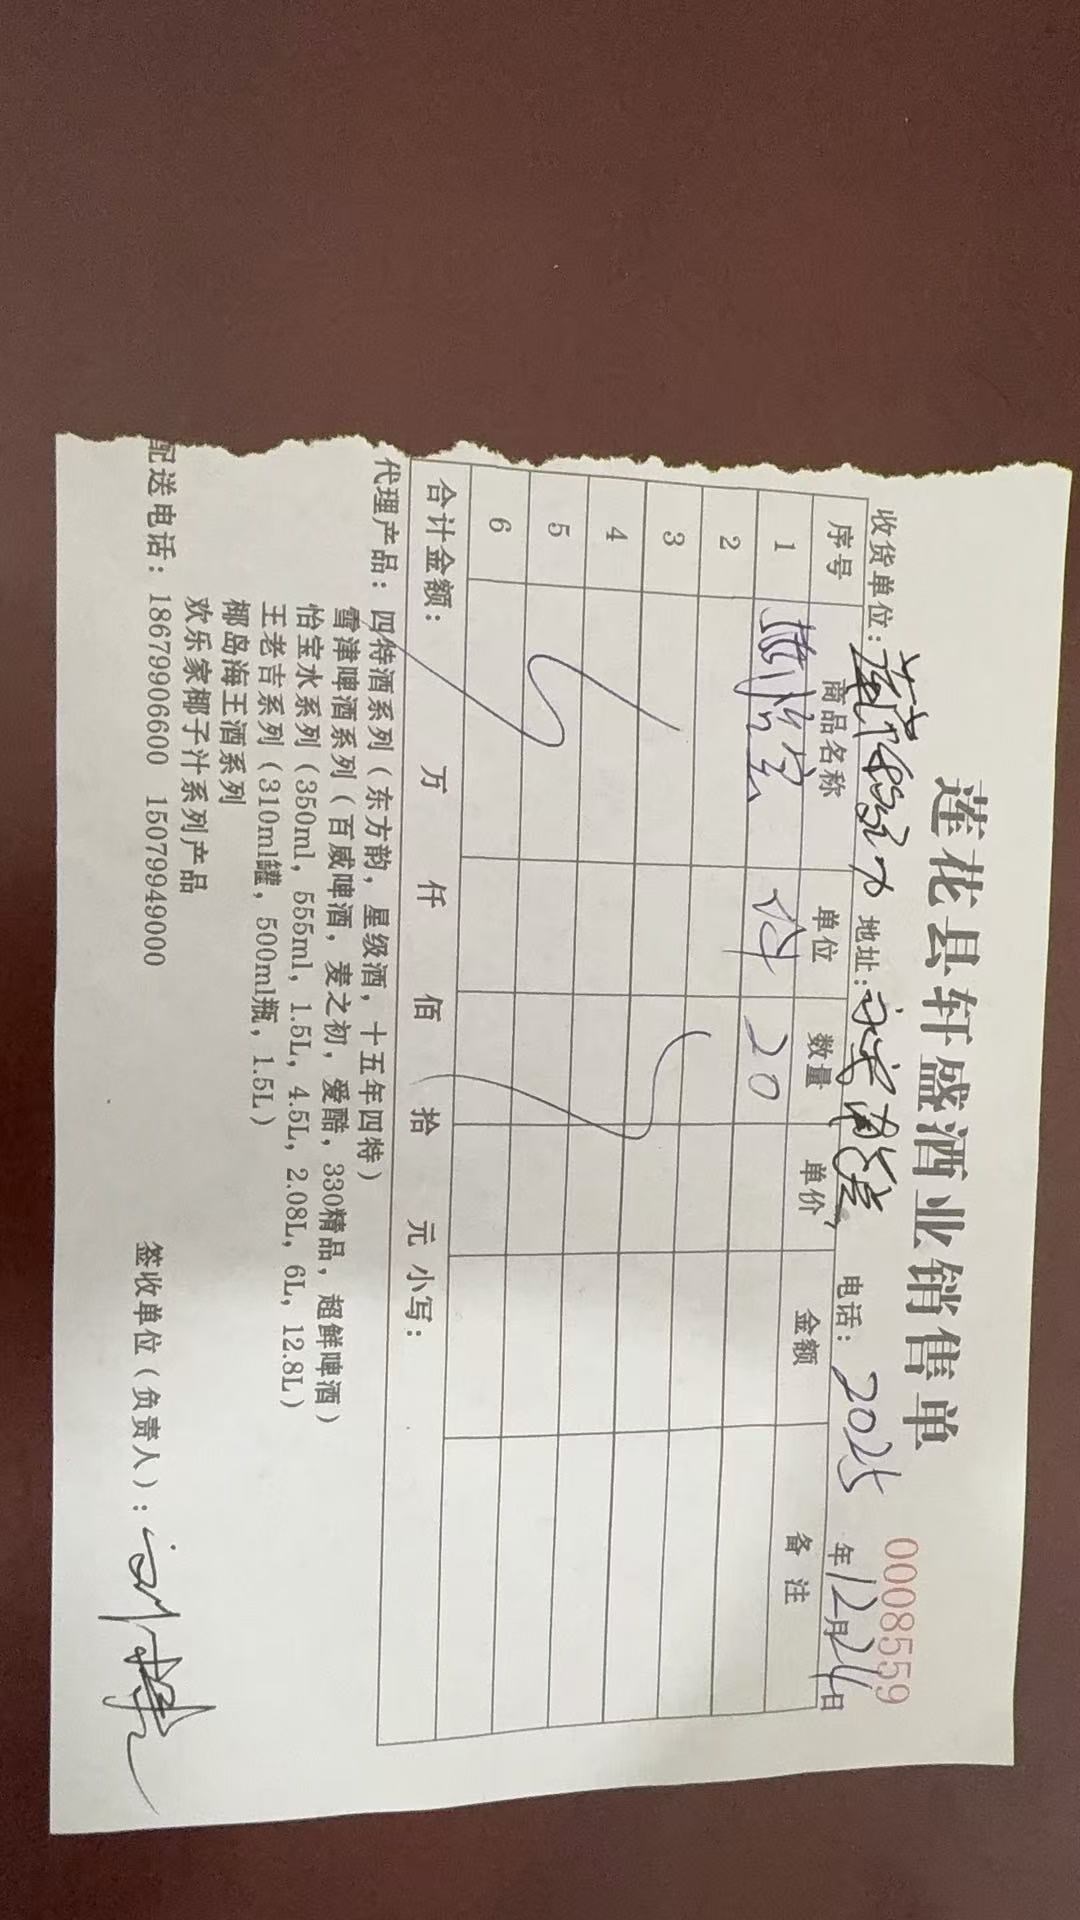 莲花县轩盛酒业销售单
0008559
收货单位: 地址: 电话: 2025年12月24日
序号 商品名称 单位 数量 单价 金额 备注
1 怡宝 件 20
2
3
4
5
6
合计金额: 万 仟 佰 拾 元 小写:
代理产品: 四特酒系列(东方韵, 星级酒, 十五年四特)
雪津啤酒系列(百威啤酒, 麦之初, 爱酷, 330精品, 超鲜啤酒)
怡宝水系列(350ml, 555ml, 1.5L, 4.5L, 2.08L, 6L, 12.8L)
王老吉系列(310ml罐, 500ml瓶, 1.5L)
椰岛海王酒系列
欢乐家椰子汁系列产品
配送电话: 18679906600 15079949000 签收单位(负责人):